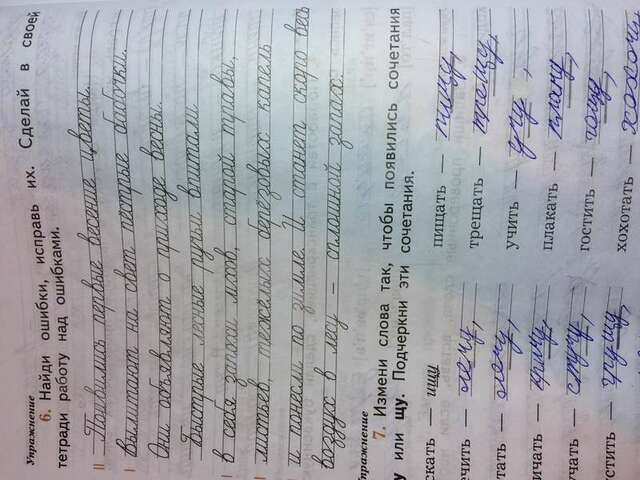 Упражнение
6. Найди ошибки, исправь их. Сделай в своей
тетради работу над ошибками.
II Появились первые весение цветы.
I Вылитают на свет пёстрые бабочки.
Они объявляют о приходе весны.
Быстрые лесные ручьи впитали
I в себя запахи мхов, старой травы,
I листьев, тежёлых берёзовых капель
и понесли по зимле. И станет скоро весь
воздух в лесу — сплошной запах.
Упражнение
7. Измени слова так, чтобы появились сочетания
у или щу. Подчеркни эти сочетания.
скать — ищу пищать — пищу,
ечить — лечу, трещать — трещу,
тать — лечу, учить — учу,
ичать — кричу, плакать — плачу,
учать — стучу, гостить — гощу,
устить — грущу, хохотать — хохочу